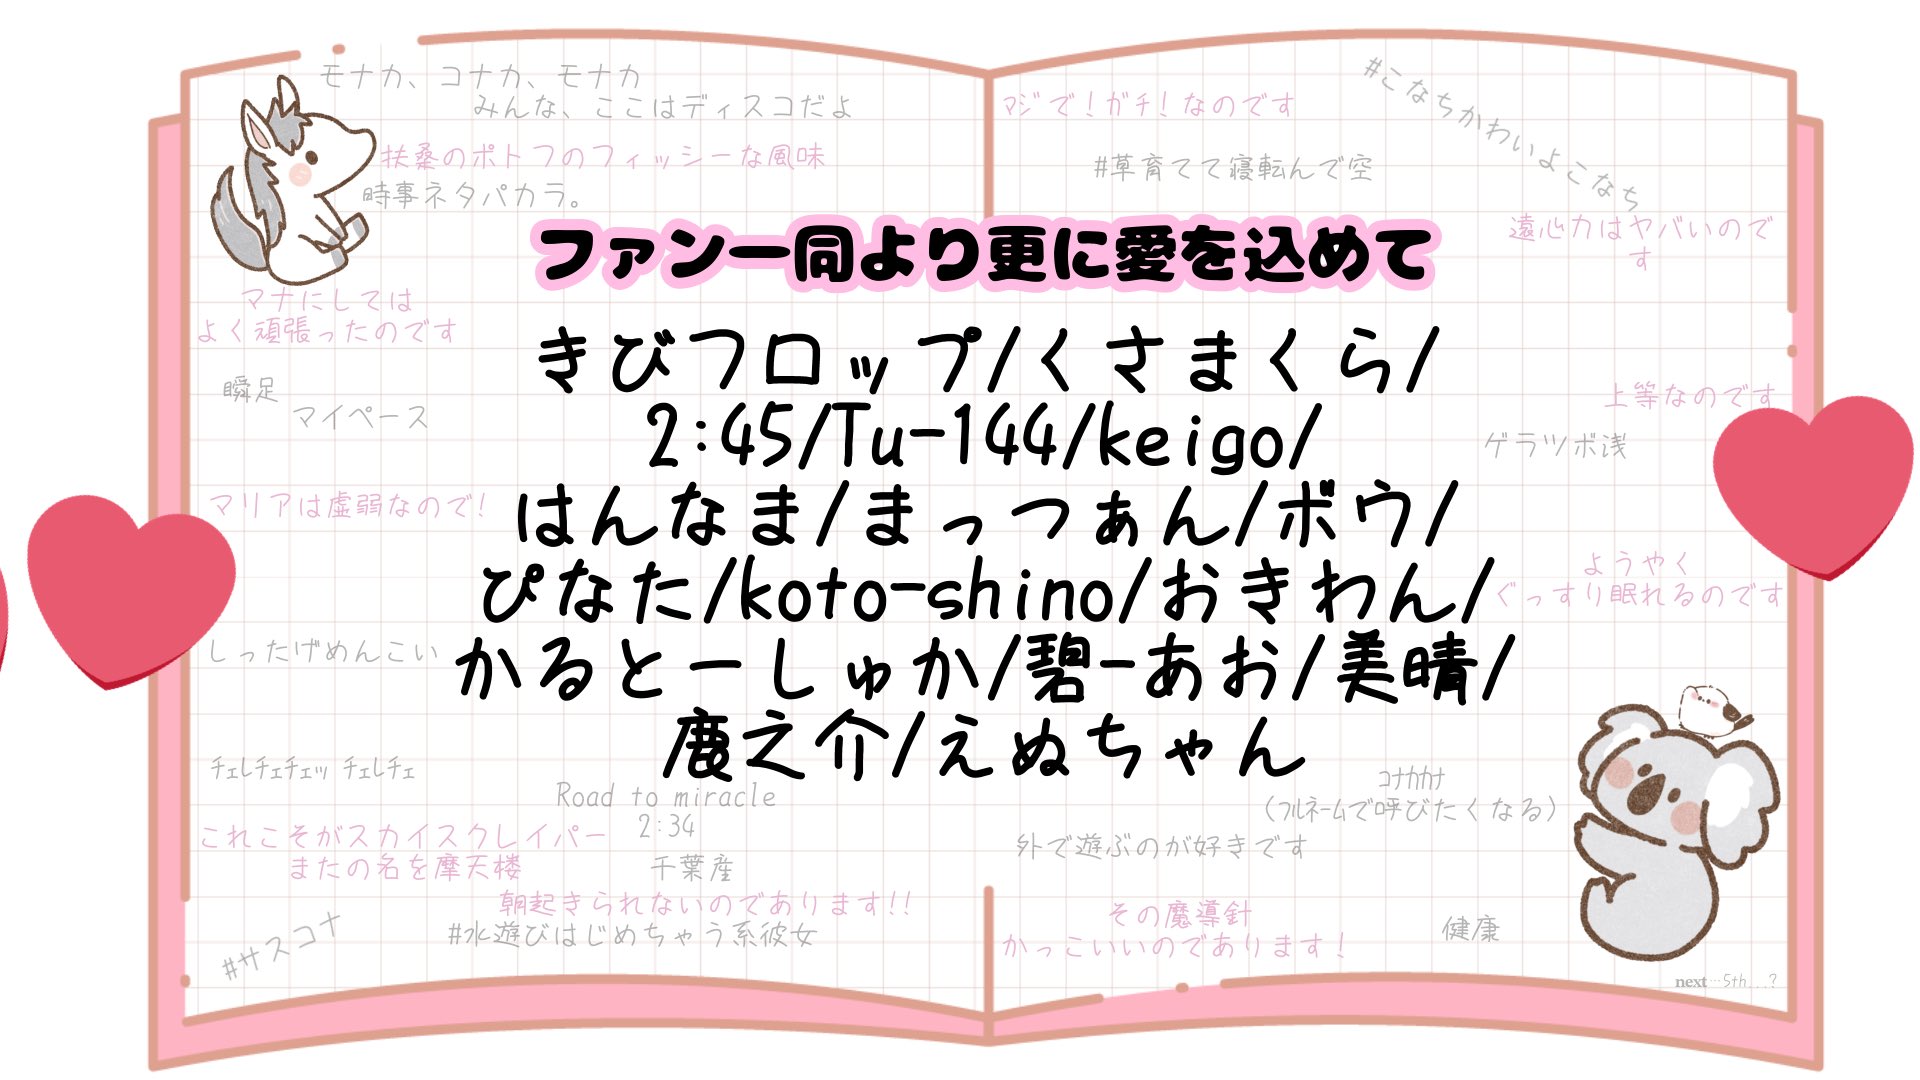 モナカ、コナカ、モナカ
みんな、ここはディスコだよ
扶桑のポトフのフィッシーな風味
時事ネタパカラ。
マジで!ガチ!なのです
#こなちかわいよこなち
#草育てて寝転んで空
遠心力はヤバいので
す
ファン一同より更に愛を込めて
マナにしては
よく頑張ったのです
瞬足
マイペース
上等なのです
ゲラツボ浅
マリアは虚弱なので!
ようやく
ぐっすり眠れるのです
しったげめんこい
きびフロップ/くさまくら/
2:45/Tu-144/keigo/
はんなま/まっつぁん/ボウ/
ぴなた/koto-shino/おきわん/
かるとーしゅか/碧-あお/美晴/
鹿之介/えぬちゃん
チェレチェチェッ チェレチェ
Road to miracle
2:34
千葉産
これこそがスカイスクレイパー
またの名を摩天楼
朝起きられないのであります!!
#水遊びはじめちゃう系彼女
#サスコナ
コナカカナ
(フルネームで呼びたくなる)
外で遊ぶのが好きです
その魔導針
かっこいいのであります!
健康
next…5th...?